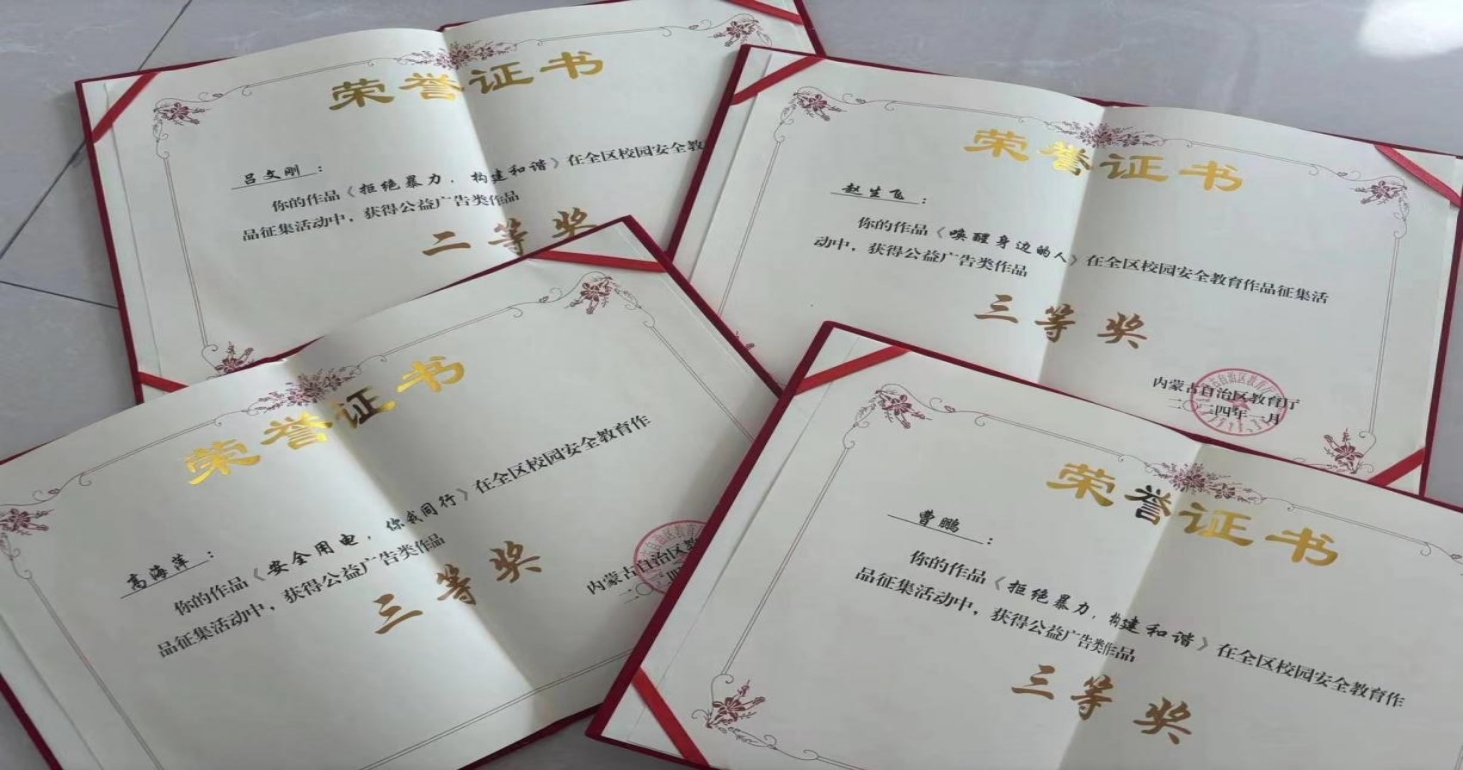 荣誉证书
吕文刚：
你的作品《拒绝暴力，构建和谐》在全区校园安全教
品征集活动中，获得公益广告类作品
二等奖
荣誉证书
赵生飞：
你的作品《唤醒身边的人》在全区校园安全教育作品征集活
动中，获得公益广告类作品
三等奖
内蒙古自治区教育厅
二〇二四年一月
荣誉证书
高海萍：
你的作品《安全用电，你我同行》在全区校园安全教育作
品征集活动中，获得公益广告类作品
三等奖
内蒙古自治区教
荣誉证书
曹鹏：
你的作品《拒绝暴力，构建和谐》在全区校园安全教育作
品征集活动中，获得公益广告类作品
三等奖